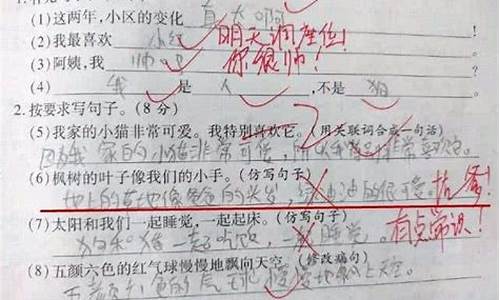 (1)这两年,小区的变化真大啊
(2)我最喜欢 小红 明天调座位!
(3)阿姨,我 帅吧 你很帅!
(4) 我 是 人 ,不是 狗
2.按要求写句子。(8分)
(5)我家的小猫非常可爱。我特别喜欢它。(用关联词合成一句话)
因为我家的小猫非常可爱,所以我非常喜欢它。
(6)枫树的叶子像我们的小手。(仿写句子)
地上的草地像爸爸的头发,绿油油的很可爱。
(7)太阳和我们一起睡觉,一起起床。(仿写句子) 有点常识!
狗和猪一起吃饭,一起睡觉。
(8)五颜六色的红气球慢慢地飘向天空。(修改病句)
五颜六色的气球慢慢地飘上天空。